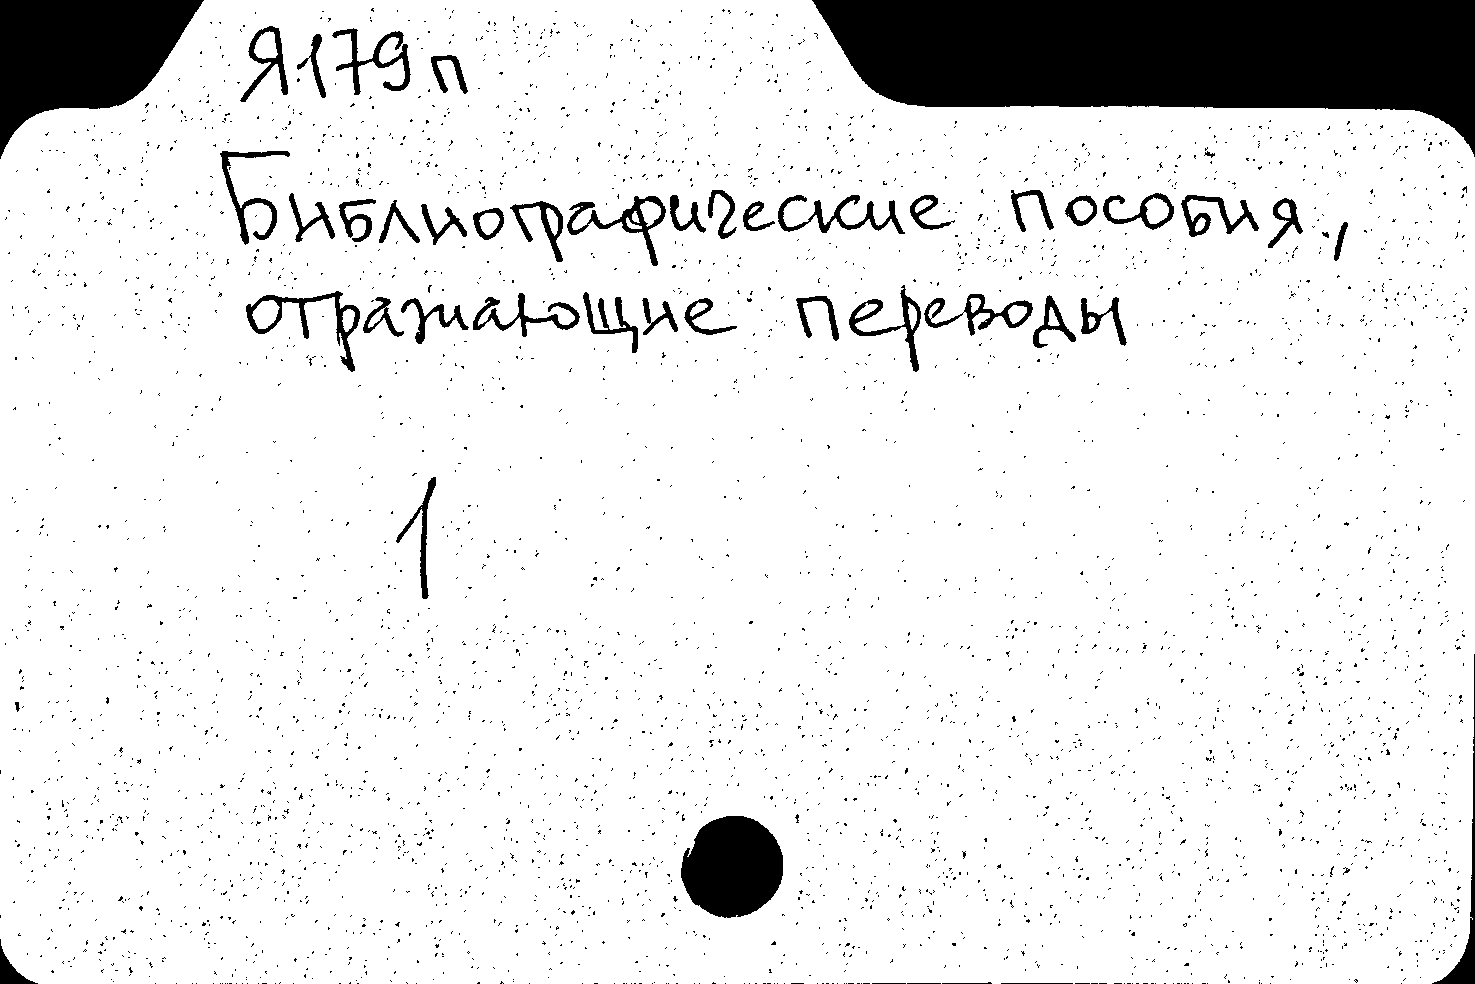 Я179п
Библиографические пособия,
отражающие переводы
1